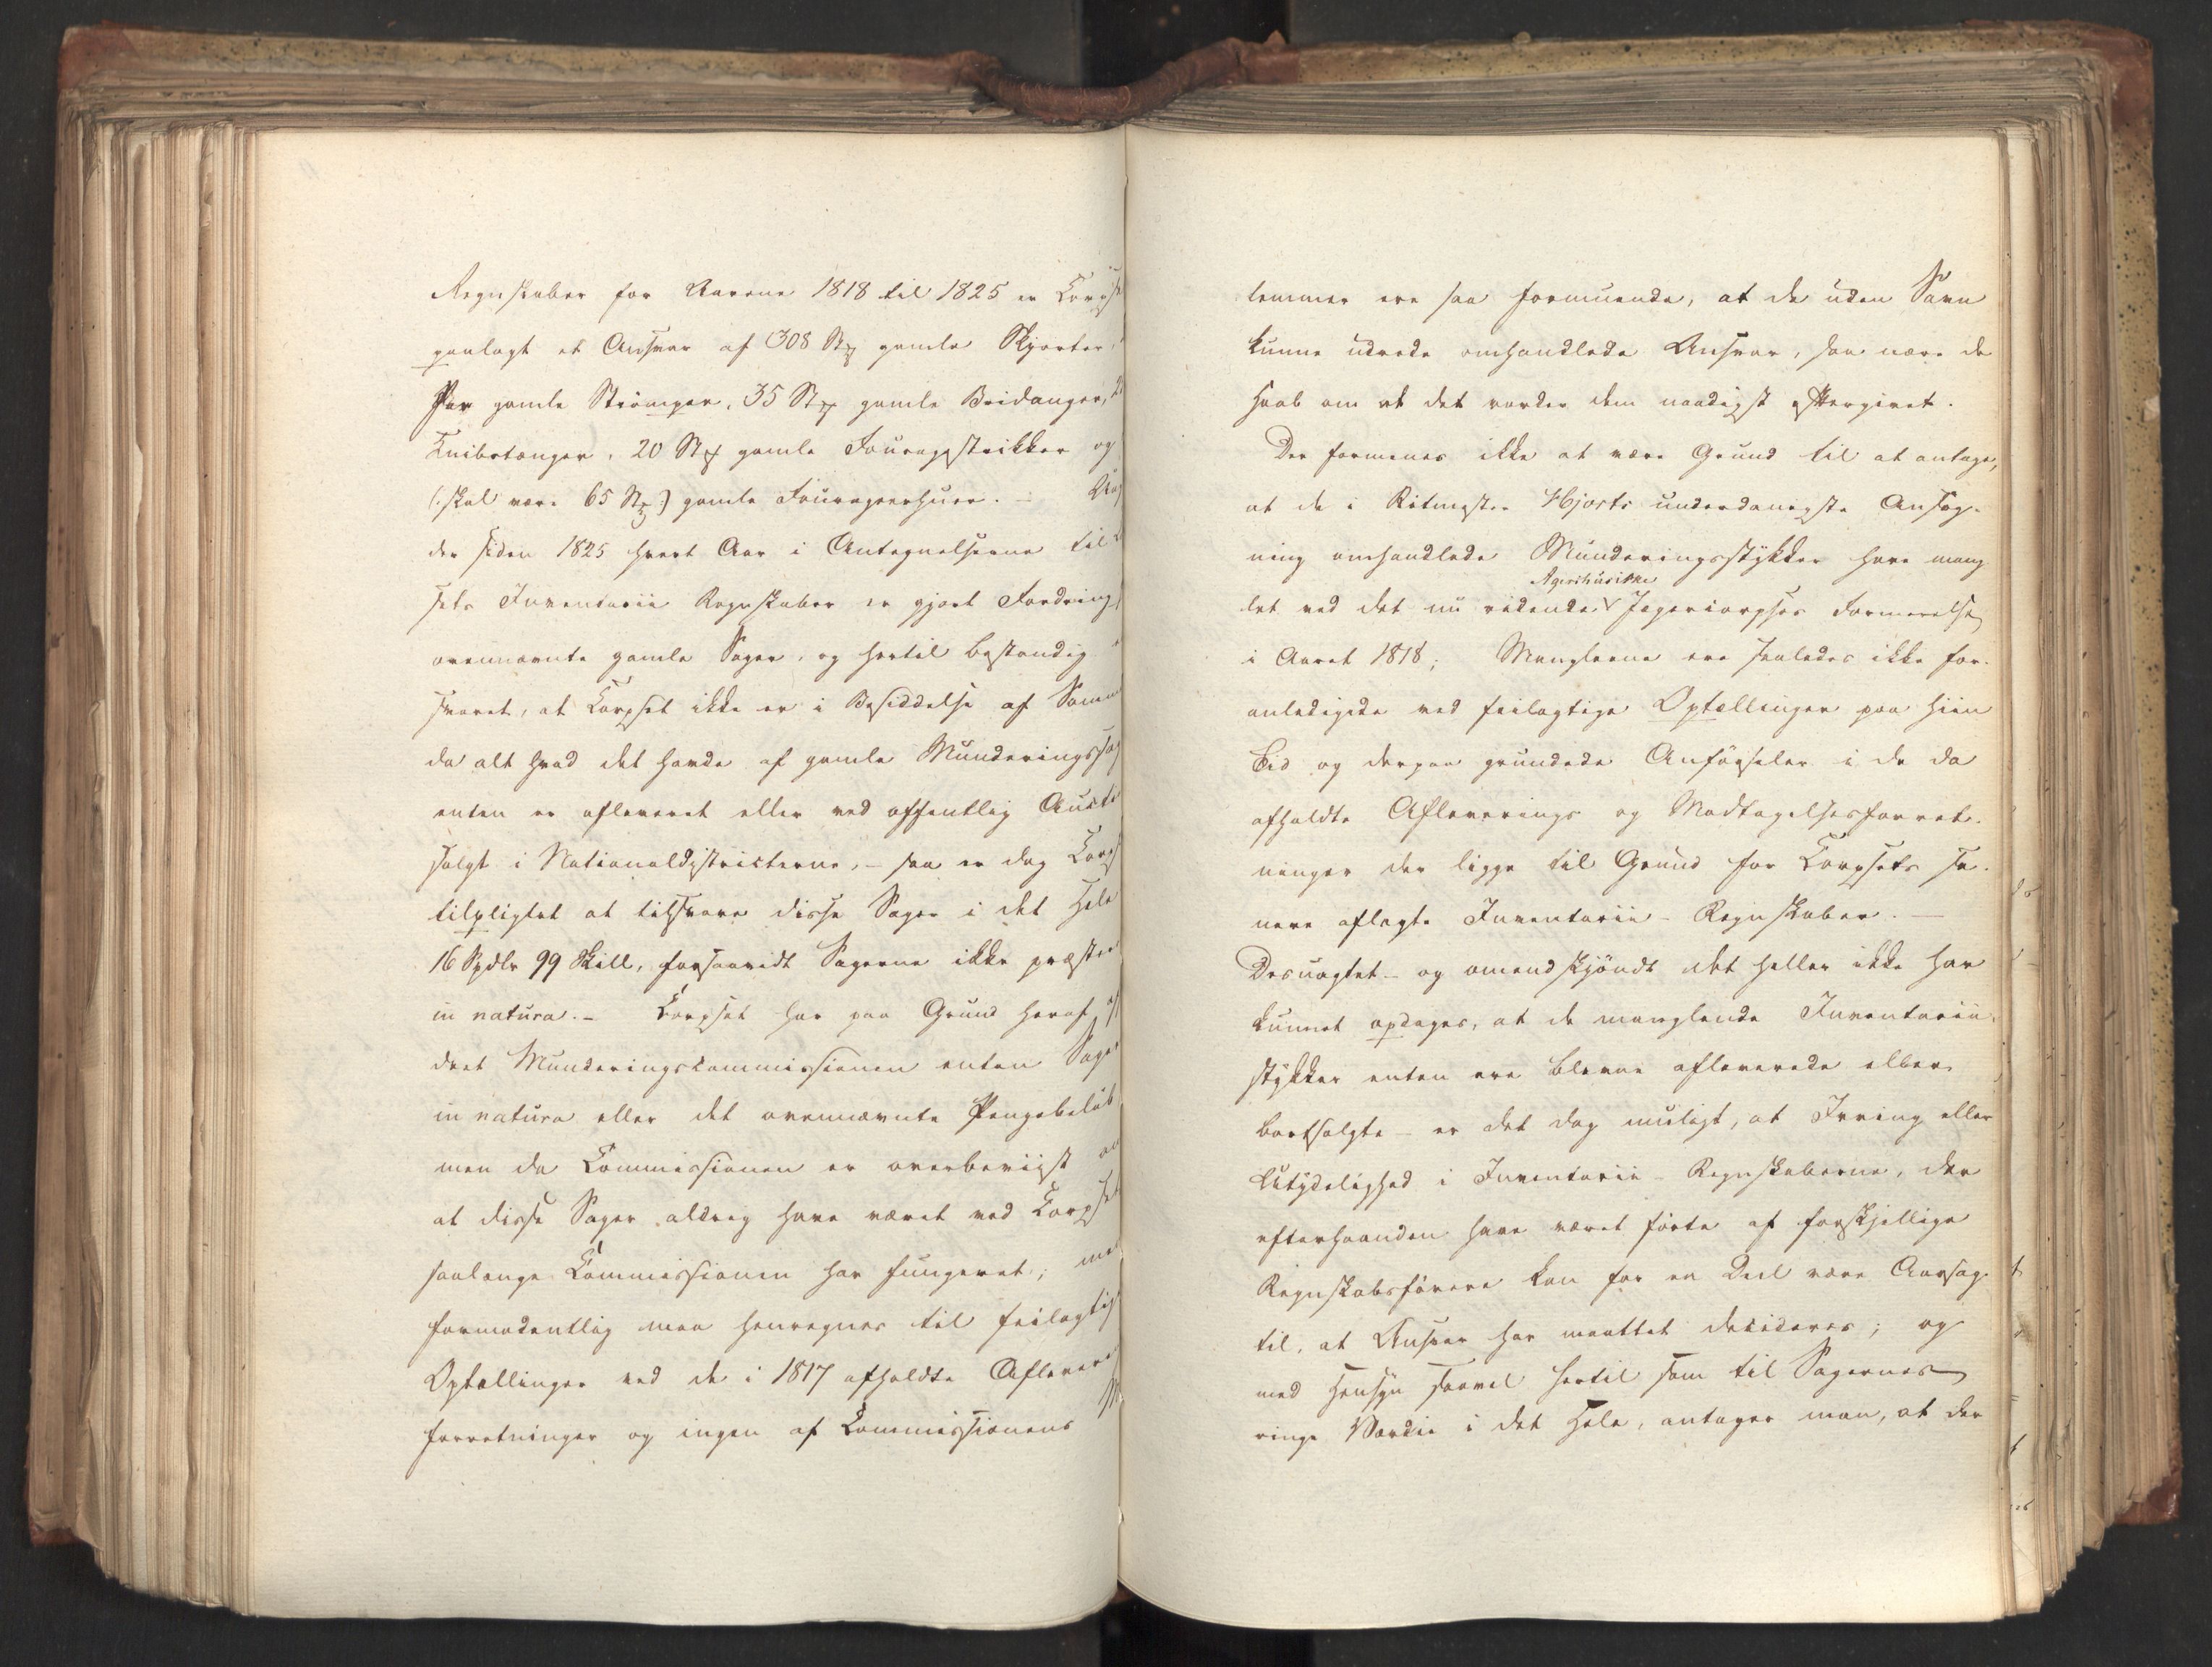 Regnskaber for Aarene 1818 til 1825 er Corpse
paalagt et Ansvar af 308 Stk gamle Skjorter,
Par gamle Strömper, 35 Stk gamle Bridanger, 2
Knibetænger, 20 Stk gamle Fouragestrikker og
(: skal være 65 Stk :) gamle Fourageerhuer. –
der siden 1825 hvert Aar i Antegnelserne til
sets Inventarii Regnskaber er gjort Fordring
ovennævnte gamle Sager, og hertil bestandig
svaret, at Corpset ikke er i Besiddelse af Samme
da alt hvad det havde af gamle Munderingssag
enten er afleveret eller ved offentlig Aucti
solgt i Nationaldistricterne, – saa er dog Corps
tilpligtet at tilsvare disse Sager i det Hele
16 Spdlr 99 Skill, forsaavidt Sagerne ikke præster
in natura. – Corpset har paa Grund heraf af
dret Munderingscommissionen enten Sager
in natura eller det ovennævnte Pengebelöb
men da Commissionen er overbeviist om
at disse Sager aldrig have været ved Corpset
saalænge Commissionen har fungeret, men
formodentlig maa henregnes til feilagtig
Optællinger ved de i 1817 afholdte Aflever
forretninger og ingen af Commissionens M
lemmer ere saa formuende, at de uden Savn
kunne udrede omhandlede Ansvar, saa nære de
Haab om at det vorder dem naadigst eftergivet.
Der formenes ikke at være Grund til at antage,
at de i Ritmester Hjorts underdanigste Ansög-
ning omhandlede Munderingsstykker have mang
let ved det nu ridende Agershusiske Jegercorpses Formerelse
i Aaret 1818; Manglerne ere saaledes ikke for-
anledigede ved feilagtige Optællinger paa hiin
Tid og derpaa grundede Anförseler i de da
afholdte Afleverings og Modtagelsesforret-
ninger der ligge til Grund for Corpsets se-
nere aflagte Inventarii-Regnskaber. –
Desuagtet – og omendskjöndt det heller ikke har
kunnet opdages, at de manglende Inventarii-
stykker enten ere blevne afleverede eller
bortsolgte – er det dog muligt, at Irring eller
Utydelighed i Inventarii-Regnskaberne, der
efterhaanden have været förte af forskjellige
Regnskabsförere kan for en Deel være Aarsag
til, at Ansvar har maattet decideres; og
med Hensyn saavel hertil som til Sagernes
ringe Værdie i det Hele, antager man, at der